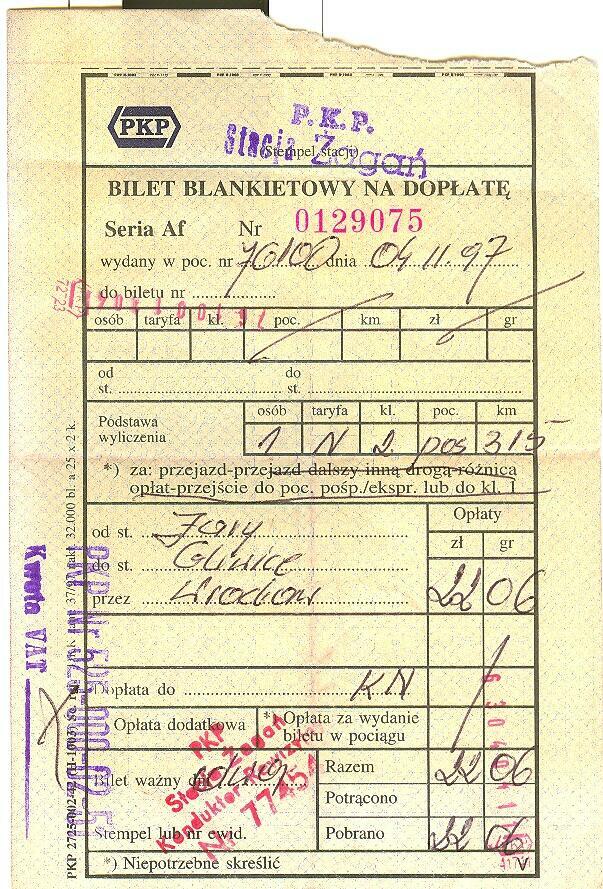 PKP
P.K.P.
Stacja Żagań
(Stempel stacji)
BILET BLANKIETOWY NA DOPŁATĘ
Seria Af Nr 0129075
wydany w poc. nr 76100 dnia 04 11. 97
do biletu nr
osób taryfa kl. poc. km zł gr
od st. do st.
Podstawa wyliczenia
osób taryfa kl. poc. km
1 N 2 pos 315
*) za: przejazd-przejazd dalszy inną drogą-różnica
opłat-przejście do poc. pośp./ekspr. lub do kl. 1
Opłaty
zł gr
od st. Żary
do st. Gliwice
przez Wrocław
22 06
Dopłata do K.N
Opłata dodatkowa *) Opłata za wydanie
biletu w pociągu
Bilet ważny dni
Razem 22 06
Potrącono
Stempel lub nr ewid. Pobrano 22 06
*) Niepotrzebne skreślić
PKP
Stacja Żagań
Konduktor Rewizyjny
Nr 77454
Kwota VAT